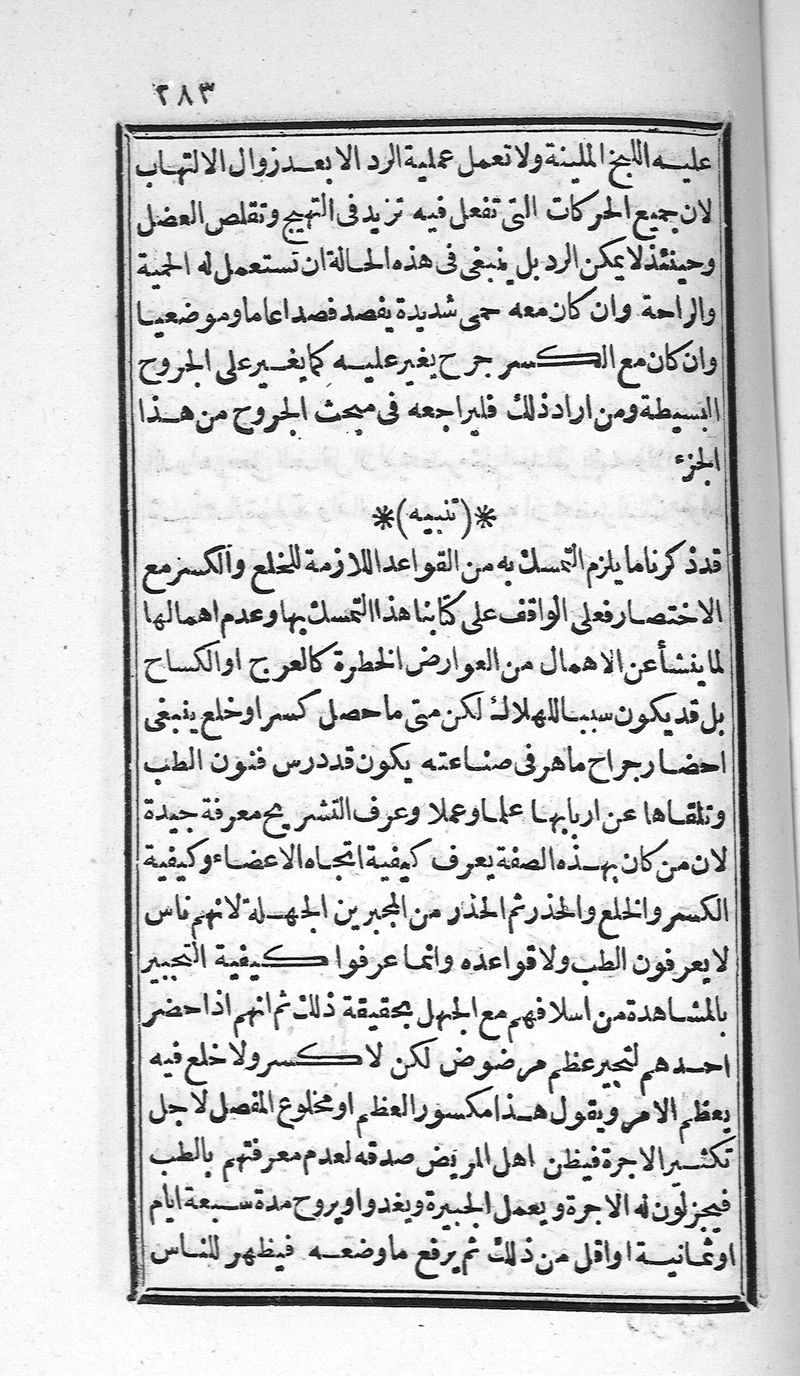 ٢٨٣
عليه اللبخ الملينة ولا تعمل عملية الرد الا بعد زوال الالتهاب
لان جميع الحركات التى تفعل فيه تزيد فى التهيج وتقلص العضل
وحينئذ لا يمكن الرد بل ينبغى فى هذه الحالة ان تستعمل له الحمية
والراحة وان كان معه حمى شديدة يفصد فصدا عاما وموضعيا
وان كان مع الكسر جرح يغير عليه كما يغير على الجروح
البسيطة ومن اراد ذلك فليراجعه فى مبحث الجروح من هذا
الجزء
*(تنبيه)*
قد ذكرنا ما يلزم التمسك به من القواعد اللازمة للخلع والكسر مع
الاختصار فعلى الواقف على كتابنا هذا التمسك بها وعدم اهمالها
لما ينشأ عن الاهمال من العوارض الخطرة كالعرج او الكساح
بل قد يكون سببا للهلاك لكن متى ما حصل كسر او خلع ينبغى
احضار جراح ماهر فى صناعته يكون قد درس فنون الطب
وتلقاها عن اربابها علما وعملا وعرف التشريح معرفة جيدة
لان من كان بهذه الصفة يعرف كيفية اتجاه الاعضاء وكيفية
الكسر والخلع والحذر ثم الحذر من المجبرين الجهلة لانهم ناس
لا يعرفون الطب ولا قواعده وانما عرفوا كيفية التجبير
بالمشاهدة من اسلافهم مع الجهل بحقيقة ذلك ثم انهم اذا حضر
احدهم لتجبير عظم مرضوض لكن لا كسر ولا خلع فيه
يعظم الامر ويقول هذا مكسور العظم او مخلوع المفصل لاجل
تكثير الاجرة فيظن اهل المريض صدقه لعدم معرفتهم بالطب
فيجزلون له الاجرة ويعمل الجبيرة ويغدو اويروح مدة سبعة ايام
او ثمانية او اقل من ذلك ثم يرفع ما وضعه فيظهر للناس